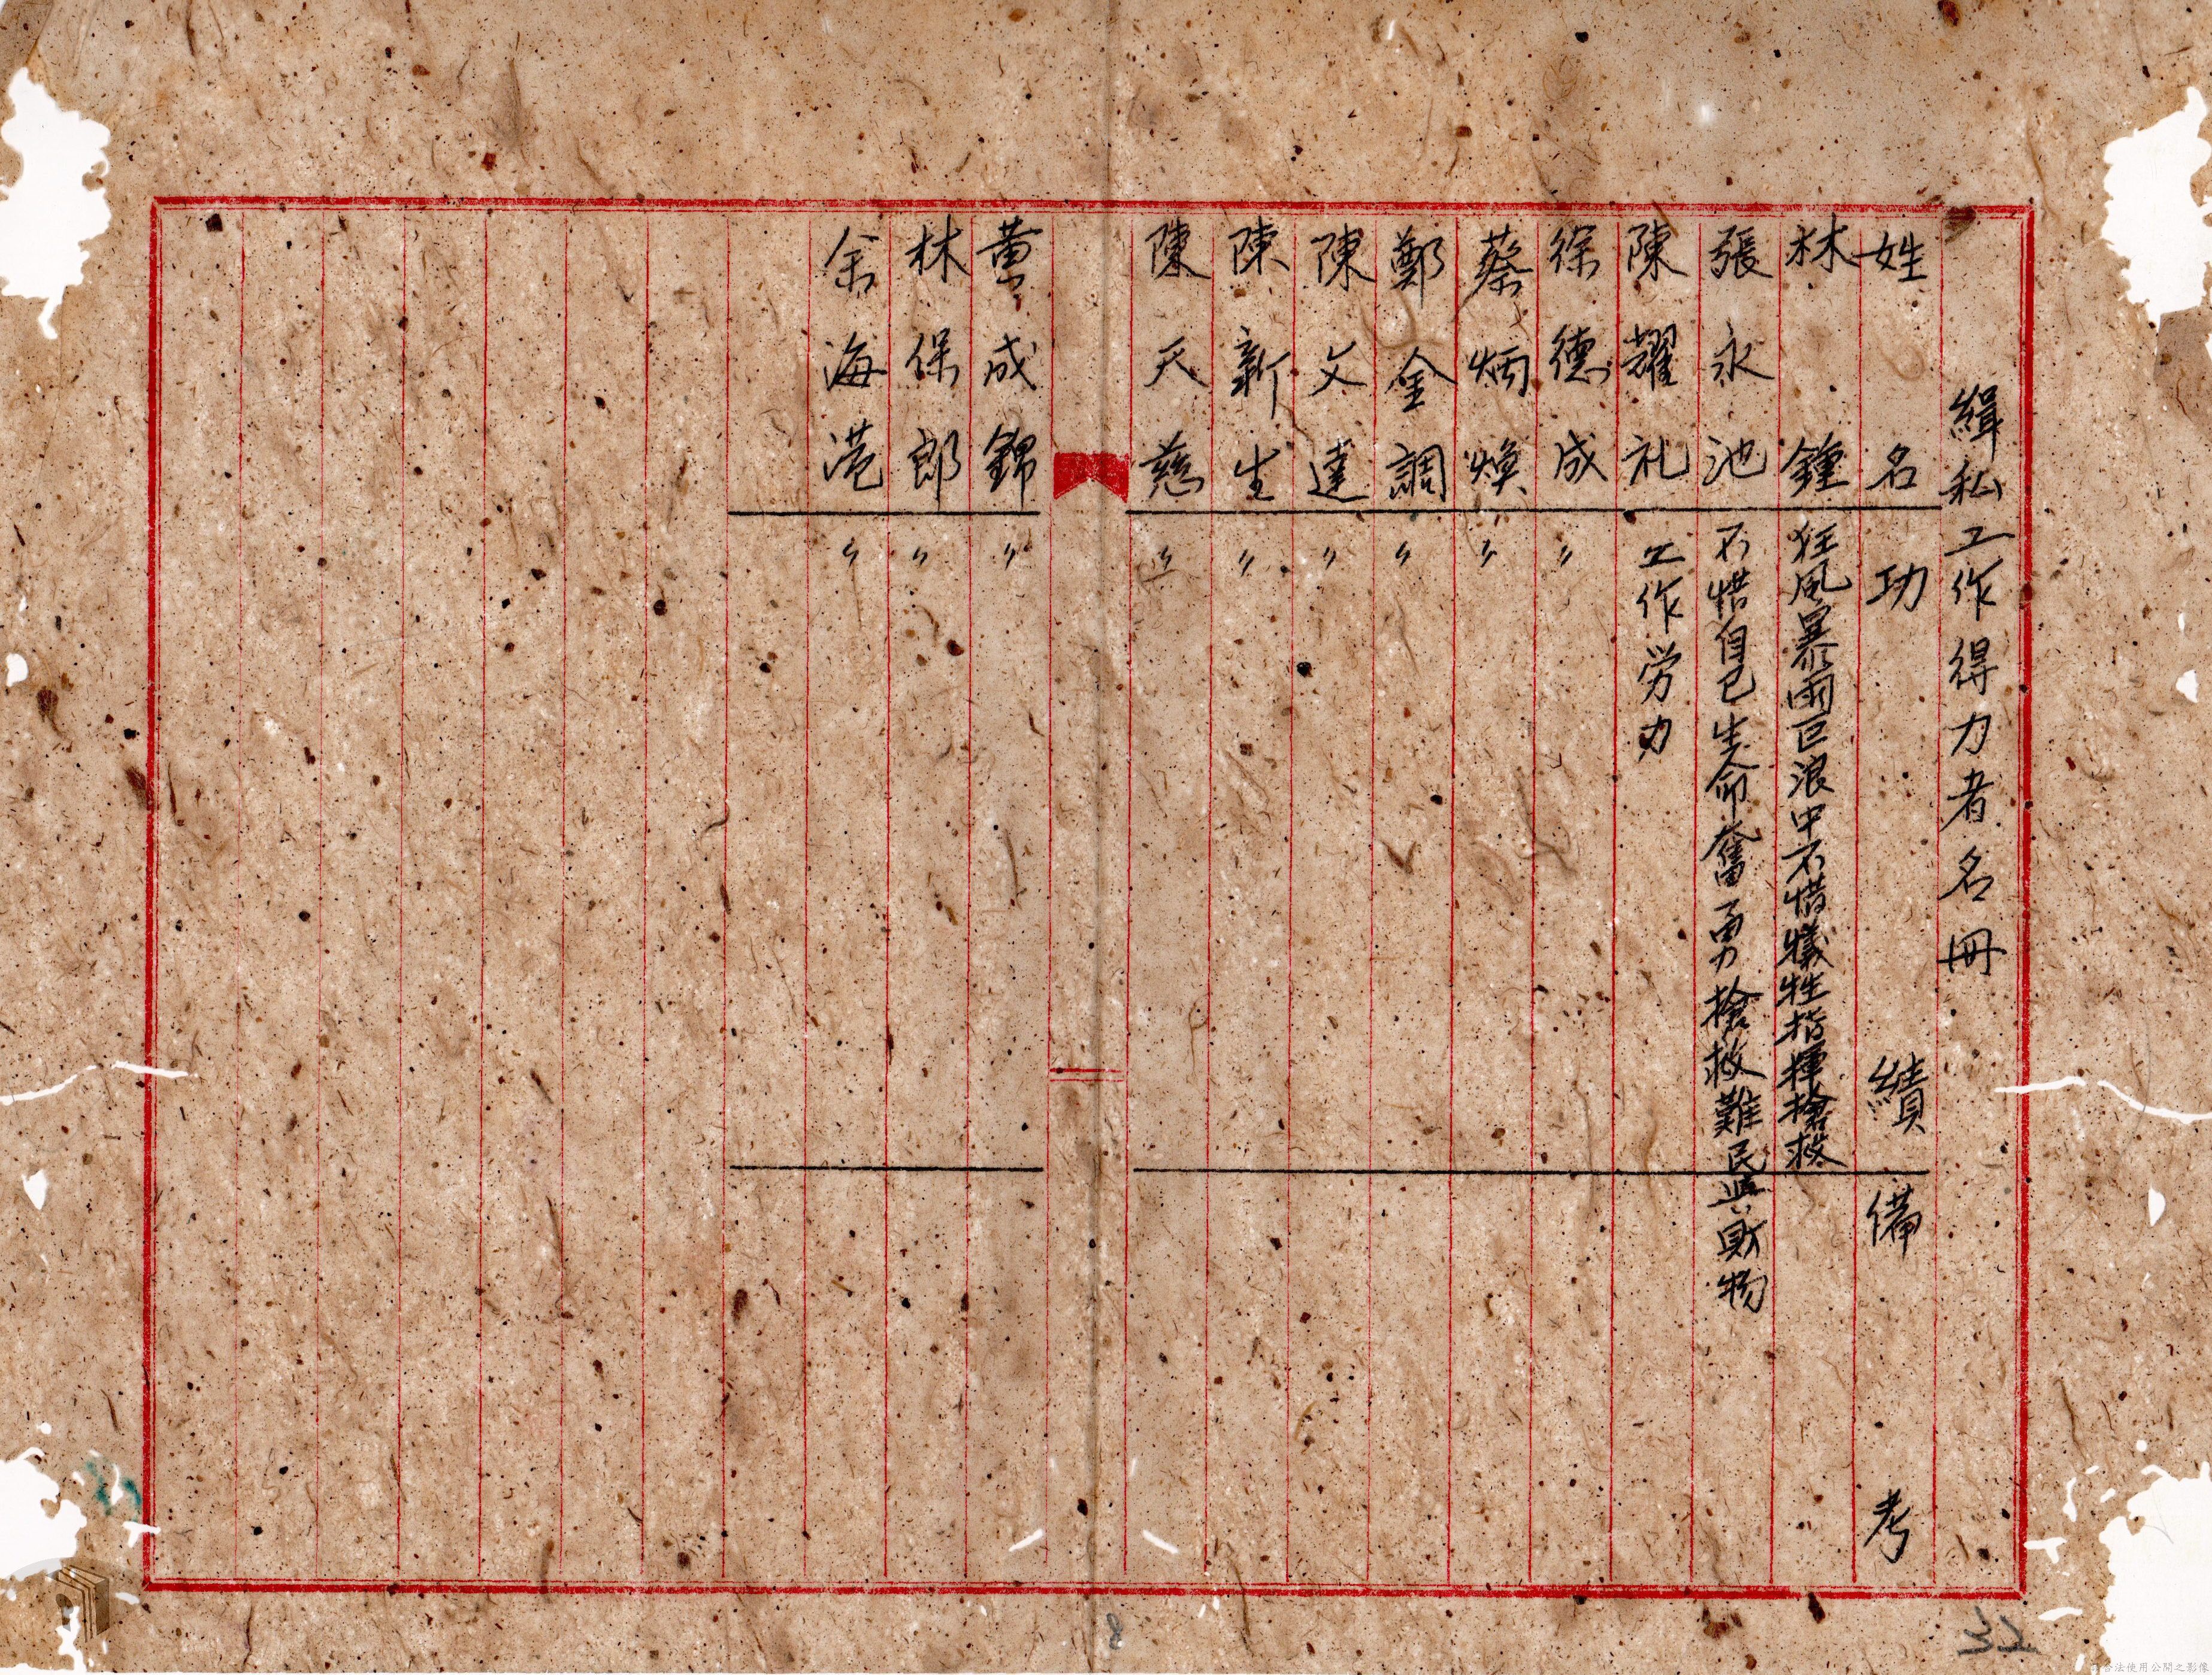 緝私工作得力者名冊
姓名 功績 備考
林鍾 狂風暴雨巨浪中不惜犧牲指揮搶救
張永池 不惜自己生命奮勇搶救難民與財物
陳耀礼 工作労力
徐德成 〃
蔡炳煥 〃
鄭金調 〃
陳文達 〃
陳新生 〃
陳天慈 〃
黃成錦 〃
林保郎 〃
余海港 〃
32
8